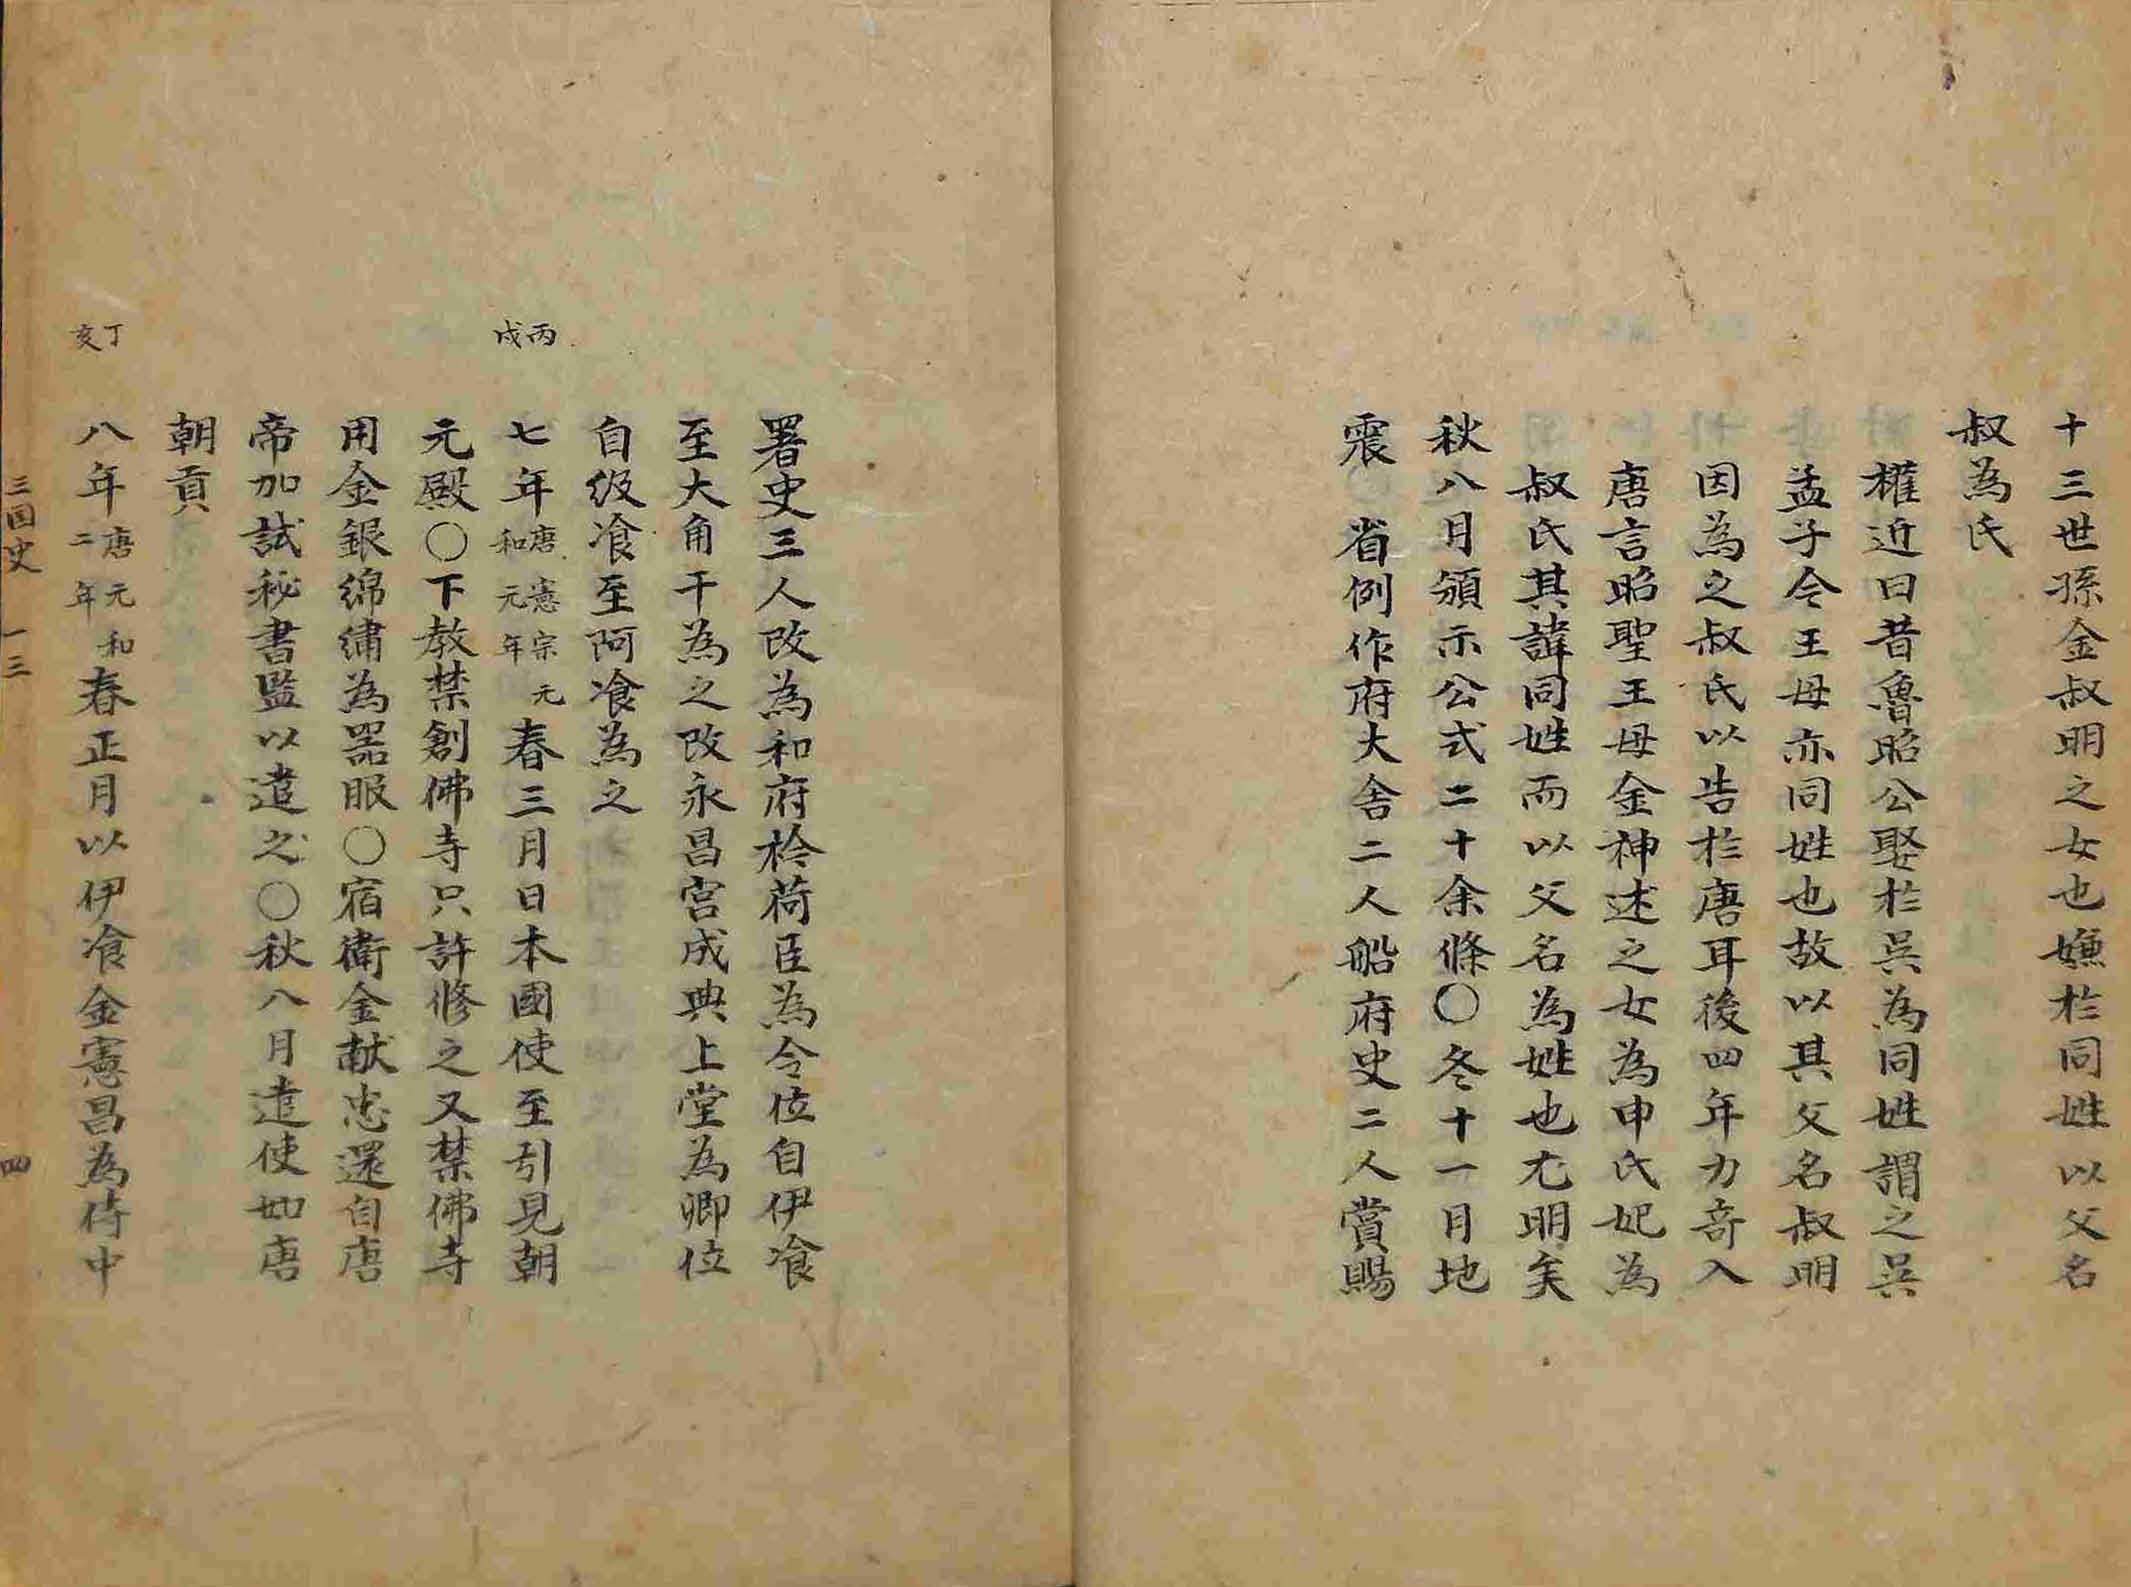 十三世孫金叔明之女也嫌於同姓以父名
叔為氏
權近曰昔魯昭公娶於吳為同姓謂之吳
孟子今王母亦同姓也故以其父名叔明
因為之叔氏以告於唐耳後四年力竒入
唐言昭聖王母金神述之女為申氏妃為
叔氏其諱同姓而以父名為姓也尤明矣
秋八月頒示公式二十余條〇冬十一月地
震 省例作府大舍二人船府史二人賞賜
署史三人改為和府衿荷臣為令位自伊飡
至大角干為之改永昌宮成典上堂為卿位
自级飡至阿飡為之
丙戌
七年唐憲宗元和元年春三月日本國使至引見朝
元殿〇下教禁創佛寺只許修之又禁佛寺
用金銀綿繡為器服〇宿衛金献忠還自唐
帝加試秘書監以遣之〇秋八月遣使如唐
朝貢
丁亥
八年唐元和二年春正月以伊飡金憲昌為侍中
三国史 一三 四